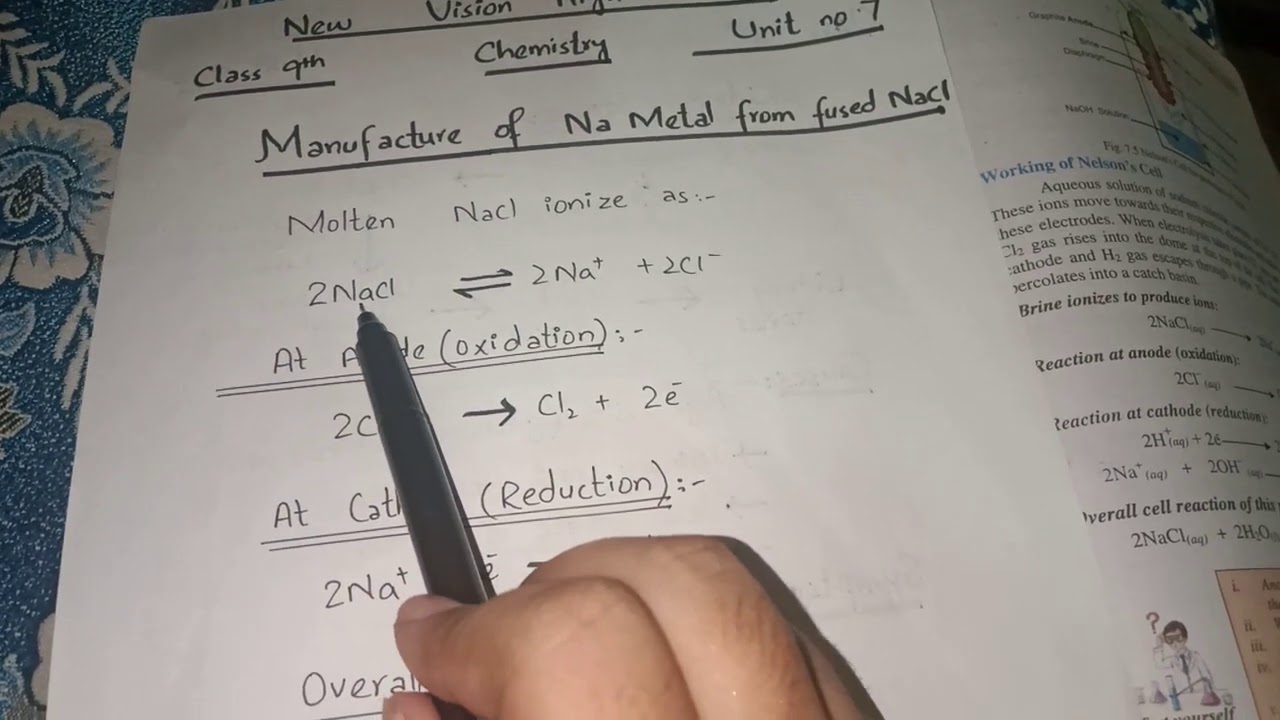 New Vision
Class 9th Chemistry Unit no.7
Manufacture of Na Metal from fused NaCl
Molten NaCl ionize as:-
2NaCl ⇌ 2Na⁺ + 2Cl⁻
At (Oxidation):-
2C → Cl₂ + 2e⁻
At Cath (Reduction):-
2Na⁺ e⁻
Overal
Graphite Anode
Brine
Diaphragm
NaOH Solution
Fig. 7.5 Nelson's
Working of Nelson's Cell
Aqueous solution of
These ions move towards their
hese electrodes. When
Cl₂ gas rises into the dome at the
cathode and H₂ gas escapes through
percolates into a catch basin.
Brine ionizes to produce ions:
2NaCl(aq) →
Reaction at anode (oxidation):
2Cl⁻(aq)
Reaction at cathode (reduction):
2H⁺(aq) + 2e →
2Na⁺(aq) + 2OH⁻
verall cell reaction of this
2NaCl(aq) + 2H₂O
i.
ii.
iii.
iv.
?
yourself